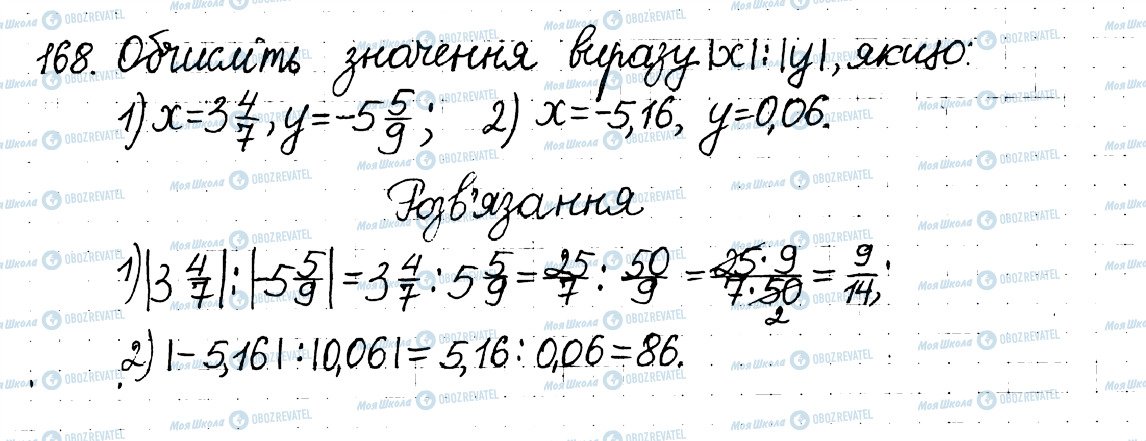 168. Обчисліть значення виразу |x|:|y|, якщо:
1) x=3 4/7, y=-5 5/9; 2) x=-5,16, y=0,06.
Розв'язання
1) |3 4/7|:|-5 5/9|=3 4/7:5 5/9=25/7:50/9=25·9/7·50 2=9/14;
2) |-5,16|:|0,06|=5,16:0,06=86.